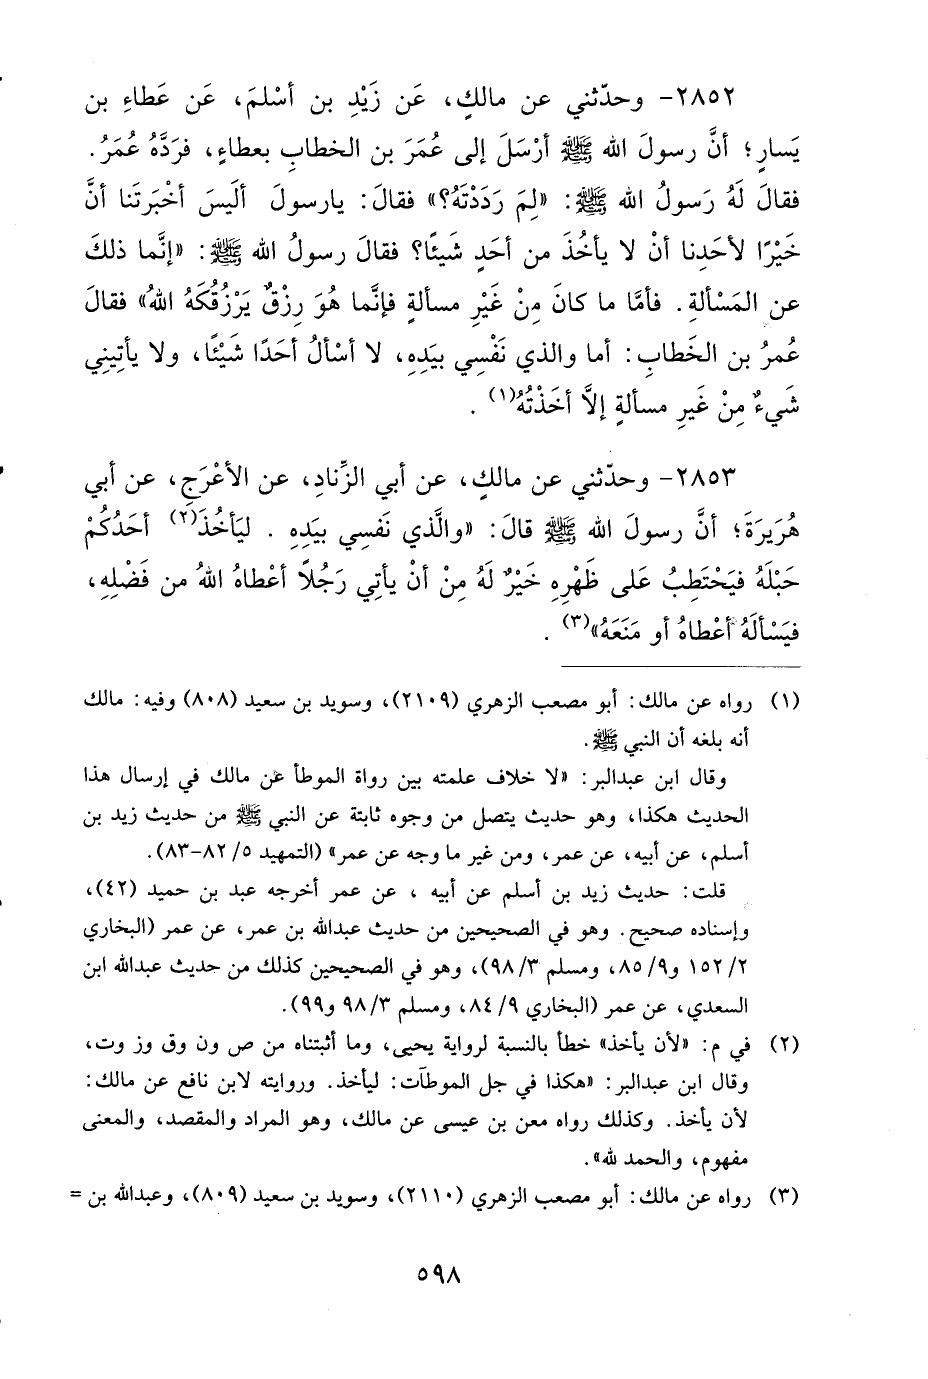 ٢٨٥٢- وحدّثني عن مالكٍ، عَن زَيْدِ بن أسْلمَ، عَن عَطاءِ بن
يَسارٍ؛ أنَّ رسولَ الله ﷺ أرْسَلَ إلى عُمَرَ بن الخطابِ بعطاءٍ، فرَدَّهُ عُمَرُ.
فقالَ لَهُ رَسولُ الله ﷺ: «لِمَ رَدَدْتَهُ؟» فقالَ: يارسولَ ألَيسَ أخْبَرتَنا أنَّ
خَيْرًا لأحَدِنا أنْ لا يأخُذَ من أحَدٍ شَيئًا؟ فقالَ رسولُ الله ﷺ: «إنَّما ذلكَ
عن المَسْألةِ. فأمَّا ما كانَ مِنْ غَيْرِ مسألةٍ فإنَّما هُوَ رِزْقٌ يَرْزُقُكَهُ اللهُ» فقالَ
عُمرُ بن الخَطابِ: أما والذي نَفْسِي بيَدِهِ، لا أسْألُ أحَدًا شَيْئًا، ولا يأتِيني
شَيءٌ مِنْ غَيرِ مسألةٍ إلاَّ أخَذْتُهُ(١) .
٢٨٥٣- وحدّثني عن مالكٍ، عن أبي الزِّنادِ، عن الأعْرَجِ، عن أبي
هُرَيرَةَ؛ أنَّ رسولَ الله ﷺ قالَ: «والَّذي نَفسِي بيَدِهِ . ليَأخُذَ(٢) أحَدُكُمْ
حَبْلَهُ فيَحْتَطِبُ عَلى ظَهْرِهِ خَيْرٌ لَهُ مِنْ أنْ يأتي رَجُلاً أعْطاهُ اللهُ من فَضْلِهِ،
فيَسْألَهُ أعْطاهُ أو مَنَعَهُ»(٣) .
(١) رواه عن مالك: أبو مصعب الزهري (٢١٠٩)، وسويد بن سعيد (٨٠٨) وفيه: مالك
أنه بلغه أن النبي ﷺ.
وقال ابن عبدالبر: «لا خلاف علمته بين رواة الموطأ عن مالك في إرسال هذا
الحديث هكذا، وهو حديث يتصل من وجوه ثابتة عن النبي ﷺ من حديث زيد بن
أسلم، عن أبيه، عن عمر، ومن غير ما وجه عن عمر» (التمهيد ٥/ ٨٢-٨٣).
قلت: حديث زيد بن أسلم عن أبيه ، عن عمر أخرجه عبد بن حميد (٤٢)،
وإسناده صحيح. وهو في الصحيحين من حديث عبدالله بن عمر، عن عمر (البخاري
٢/ ١٥٢ و٩/ ٨٥، ومسلم ٣/ ٩٨)، وهو في الصحيحين كذلك من حديث عبدالله ابن
السعدي، عن عمر (البخاري ٩/ ٨٤، ومسلم ٣/ ٩٨ و٩٩).
(٢) في م: «لأن يأخذ» خطأ بالنسبة لرواية يحيى، وما أثبتناه من ص ون وق وز وت،
وقال ابن عبدالبر: «هكذا في جل الموطآت: ليأخذ. وروايته لابن نافع عن مالك:
لأن يأخذ. وكذلك رواه معن بن عيسى عن مالك، وهو المراد والمقصد، والمعنى
مفهوم، والحمد لله».
(٣) رواه عن مالك: أبو مصعب الزهري (٢١١٠)، وسويد بن سعيد (٨٠٩)، وعبدالله بن =
٥٩٨